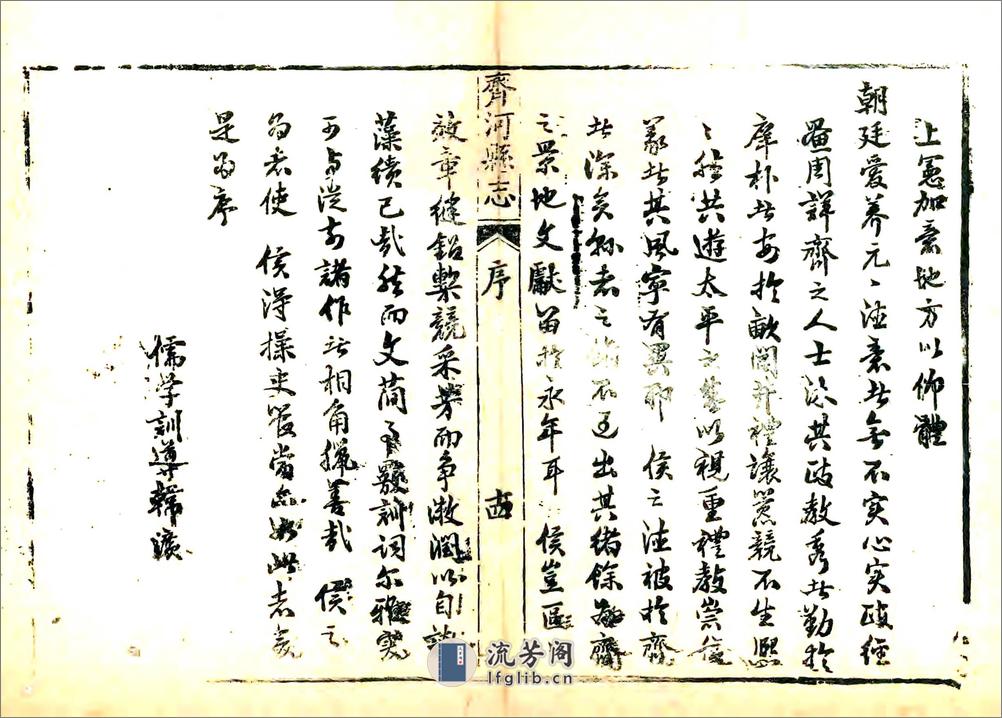 上憲加意地方以仰體
朝廷愛養元〻法意者無不實心實政經
周詳齊之人士沐其政教秀者勤於
庠朴者安於畝閭井禮讓囂競不生熙
〻然共遊太平之以視重禮教崇信
義者其風寧有異耶　侯之法被於齊
者深矣縣志之不過出其緒餘為齊
之景地文獻留於永年耳　侯豈區
齊河縣志
序
效章縫鉛槧競采芳而爭潤以自
藻繢已哉然而文簡事覈訓詞爾雅
可與從前諸作者相角獵善哉　侯之
為志使　侯得操史當如此志矣
是為序
儒學訓導韓
流芳阁
lfglib.cn